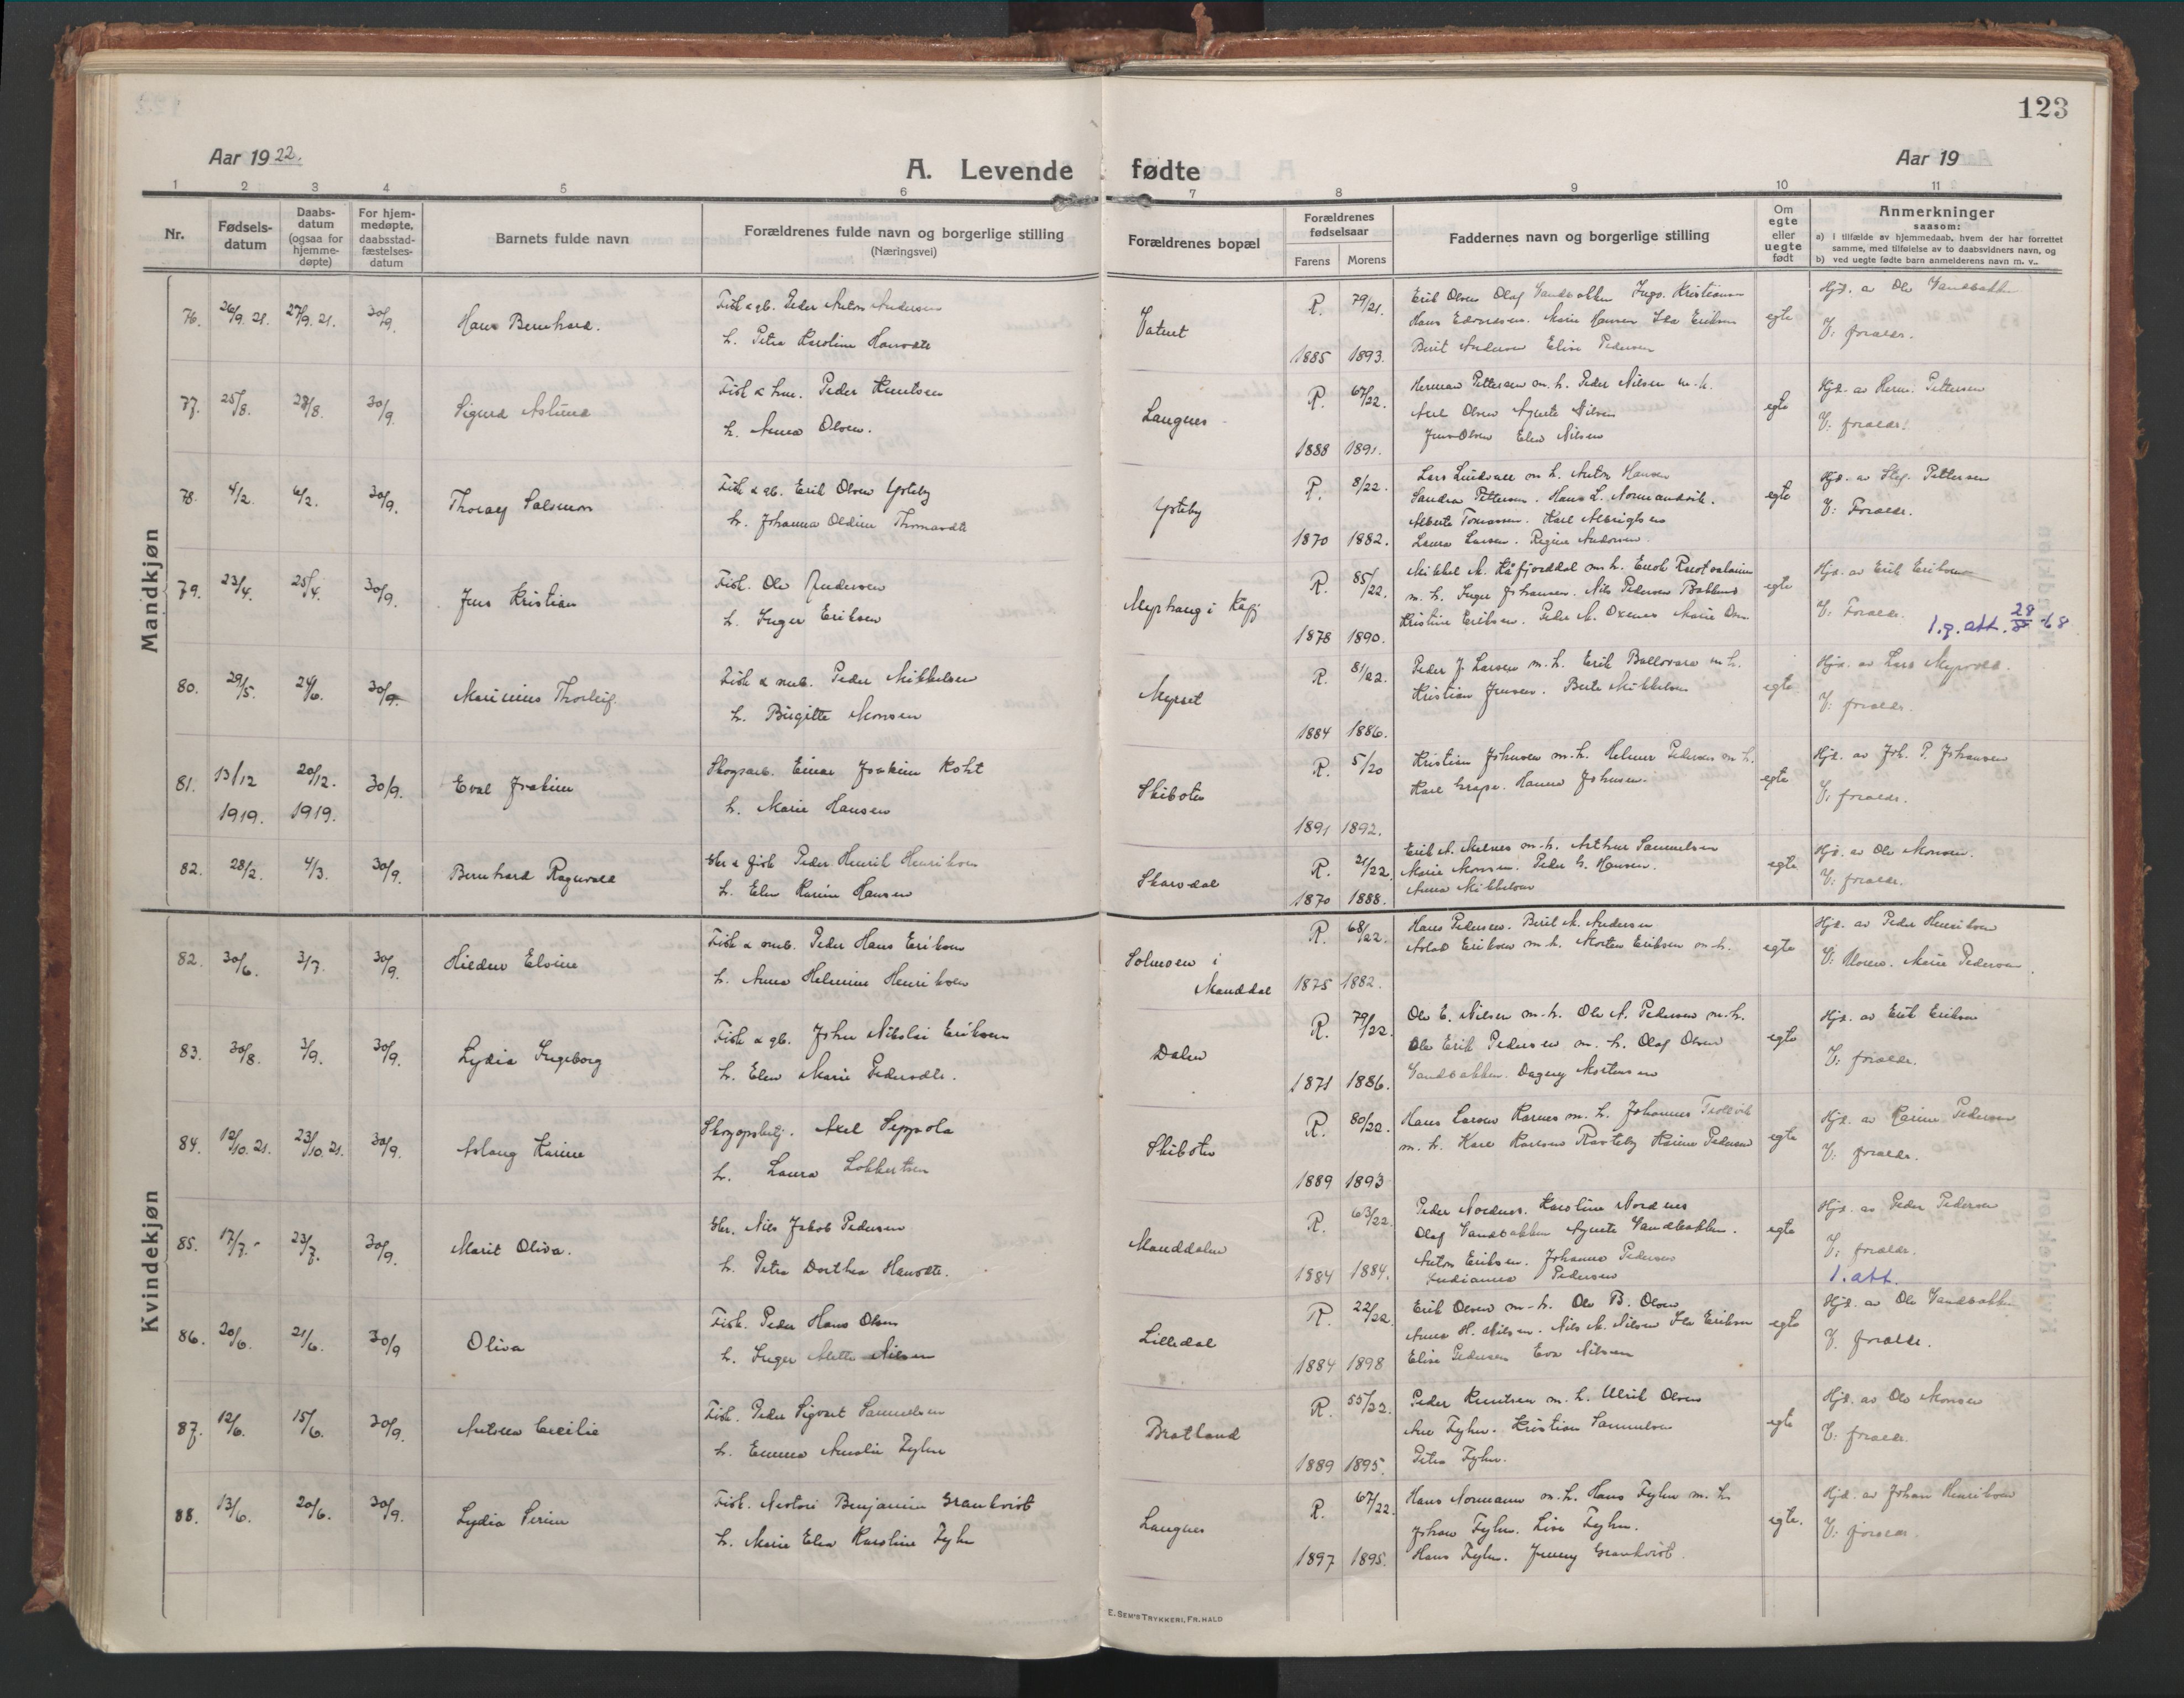 123
Aar 1922.
A. Levende fødte
Aar 19
1 2 3 4 5 6 7 8 9 10 11
Nr.
Fødsels-
datum
Daabs-
datum
(ogsaa for
hjemme-
døpte)
For hjem-
medøpte,
daabsstad-
fæstelses-
datum
Barnets fulde navn
Forældrenes fulde navn og borgerlige stilling
(Næringsvei)
Forældrenes bopæl
Forældrenes
fødselsaar
Farens Morens
Faddernes navn og borgerlige stilling
Om
egte
eller
uegte
født
Anmerkninger
saasom:
a) i tilfælde av hjemmedaab, hvem der har forrettet
samme, med tilføielse av to daabsvidners navn, og
b) ved uegte fødte barn anmelderens navn m. v..
Mandkjøn
76. 26/9. 21. 27/9. 21. 30/9. Hans Bernhard.
Fisk & gb. Peder Anton Andersen
h. Petra Karoline Hansdtr
R. 79/21.
1885 1893.
Erik Olsen Olaf Sandbakken Inga Kristiansen
Marie Hansen Ida Eriksen
Berit Andersen Elise Pedersen
egte
Hjd. av Ole Sandbakken
V: forældr.
77. 25/8. 28/8. 30/9. Sigurd
Fisk & Peder Knutsen
h. Anna Olsen.
Langnes
R. 67/22.
1888 1891.
Herman Pettersen m. h. Peder Nilsen m. h.
Axel Olsen Agnete Nilsen
Jens Olsen Elen Nilsen
egte
Hjd. av Herm. Pettersen
V: forældr.
78. 4/2. 6/2. 30/9. Thoralf Salomon
Fisk & gb. Erik Olsen Ysteby
h. Johanna Oldine Thomasdtr
Ysteby
R. 8/22.
1870 1882.
Lars Lindvall m. h. Anton Hansen
Sandra Pettersen. Hans L. Normandvik.
Alberte Tomassen. Karl Albrigtsen
Laura Larsen. Regine Andersen.
egte
Hjd. av Pettersen
V: Forældr.
79. 23/4. 25/4. 30/9. Jens Kristian
Fisk. Ole Andersen
h. Inger Eriksen
Myrhaug i Kåfj
R. 85/22.
1878 1890.
Mikkel M. Kåfjorddal m. h. Enok
m. h. Inger Johansen. Nils Pedersen
Kristine Eriksen. Peder A. Oxenes Marie
egte
Hjd. av Erik Eriksen
V: Forældr.
1. g. att. 28/8 -68
80. 29/5. 24/6. 30/9. Marinius Thorleif.
Fisk & Peder Mikkelsen
h. Birgitte Monsen
Myrset
R. 81/22.
1884 1886.
Peder J. Larsen m. h. Erik Ballovara m. h.
Kristian Jensen. Berte Mikkelsen
egte
Hjd. av Lars Myrvold.
V: forældr.
81. 13/12 1919. 20/12. 1919. 30/9. Eval Joakim
Skogsarb. Einar Joakim Koht
h. Marie Hansen
Skibotn
R. 5/20
1891 1892.
Kristian Johnsen m. h. Helmer Pedersen m. h.
Karl Grape. Hanna Johnsen.
egte
Hjd. av Joh. P. Johansen
V: forældr.
82. 28/2. 4/3. 30/9. Bernhard Ragnvald
Gbr & fisk Peder Henrik Henriksen
h. Elen Karine Hansen
Skardal
R. 21/22.
1870 1888.
Erik A. m. h. Arthur Samuelsen
Marie Monsen. Peder G. Hansen.
Anna Mikkelsen
egte
Hjd. av Ole Monsen.
V: forældr.
Kvindekjøn
82. 30/6. 3/7. 30/9. Hildur Elvine
Fisk & Peder Hans Eriksen
h. Anna Helmine Henriksen
i Manddal
R. 68/22.
1875 1882.
Hans Pedersen. Berit A. Andersen
Eriksen m. h. Morten Eriksen m. h.
egte
Hjd. av Peder Henriksen
V: Moren. Marie Pedersen.
83. 30/8. 3/9. 30/9. Lydia Ingeborg
Fisk & gb. John Nikolai Eriksen
h. Elen Marie Pedersdtr.
Dalen
R. 79/22.
1871 1886.
Ole E. Nilsen m. h. Ole A. Pedersen m. h.
Ole Erik Pedersen m. h. Olaf Olsen
Sandbakken. Dagny Mortensen
egte
Hjd. av Erik Eriksen
V: forældr.
84. 12/10. 21. 23/10. 21. 30/9. Aslaug Karine
Skogopsbetj. Axel Seppola
h. Laura Lokkertsen
Skibotn
R. 80/22.
1889 1893
Hans Larsen Karnes m. h. Johannes Trollvik
m. h. Karl Karlsen Rasteby Karine Pedersen
egte
Hjd. av Karine Pedersen
V: forældr.
85. 17/7. 23/7. 30/9. Marit Oliva.
Gbr. Nils Jakob Pedersen
h. Petra Dorthea Hansdtr.
Manddalen
R. 63/22.
1884 1884.
Peder Nordnes. Karoline Nordnes
Olaf Sandbakken Agnete Sandbakken.
Anton Eriksen. Johanna Pedersen
Indianna Pedersen
egte
Hjd. av Peder Pedersen
V: forældr.
1. att.
86. 20/6. 21/6. 30/9 Oliva
Fisk. Peder Hans Olsen
h. Inger Mette Nilsen
Lilledal
R. 22/22
1884 1898
Erik Olsen m. h. Ole B. Olsen
Anna H. Nilsen. Nils M. Nilsen Ida Eriksen
Elise Pedersen Eva Nilsen
egte
Hjd. av Ole Sandbakken
V. forældr.
87. 12/6. 15/6. 30/9. Cecilie
Fisk. Peder Sigvart Samuelsen
h. Emma Amalie Fyhn
Bratland
R. 55/22.
1889 1895.
Peder Knutsen m. h. Ulrik Olsen
Fyhn. Kristian Samuelsen
Petra Fyhn.
egte
Hjd. av Ole Monsen
V: forældr.
88. 13/6. 20/6. 30/9. Lydia Serine
Fisk. Nestori Benjamin Grankvist
h. Marie Elen Karoline Fyhn
Langnes
R. 67/22.
1897 1895.
Hans Normann m. h. Hans Fyhn m. h.
Johan Fyhn. Lina Fyhn.
Hans Fyhn. Jenny Grankvist.
egte.
Hjd. av Johan Henriksen
V: forældr.
E. SEM'S TRYKKERI, FR.HALD